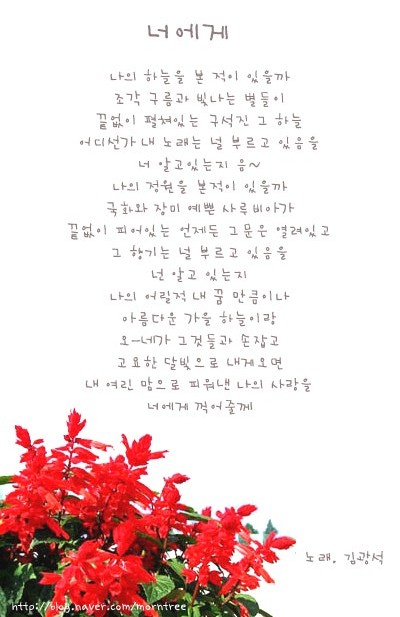 너에게
나의 하늘을 본 적이 있을까
조각 구름과 빛나는 별들이
끝없이 펼쳐있는 구석진 그 하늘
어디선가 내 노래는 널 부르고 있음을
너 알고있는지 음~
나의 정원을 본적이 있을까
국화와 장미 예쁜 사루비아가
끝없이 피어있는 언제든 그 문은 열려있고
그 향기는 널 부르고 있음을
넌 알고 있는지
나의 어릴적 내 꿈 만큼이나
아름다운 가을 하늘이랑
오-네가 그것들과 손잡고
고요한 달빛으로 내게오면
내 여린 맘으로 피워낸 나의 사랑을
너에게 꺽어줄께
노래. 김광석
http://blog.naver.com/morntree